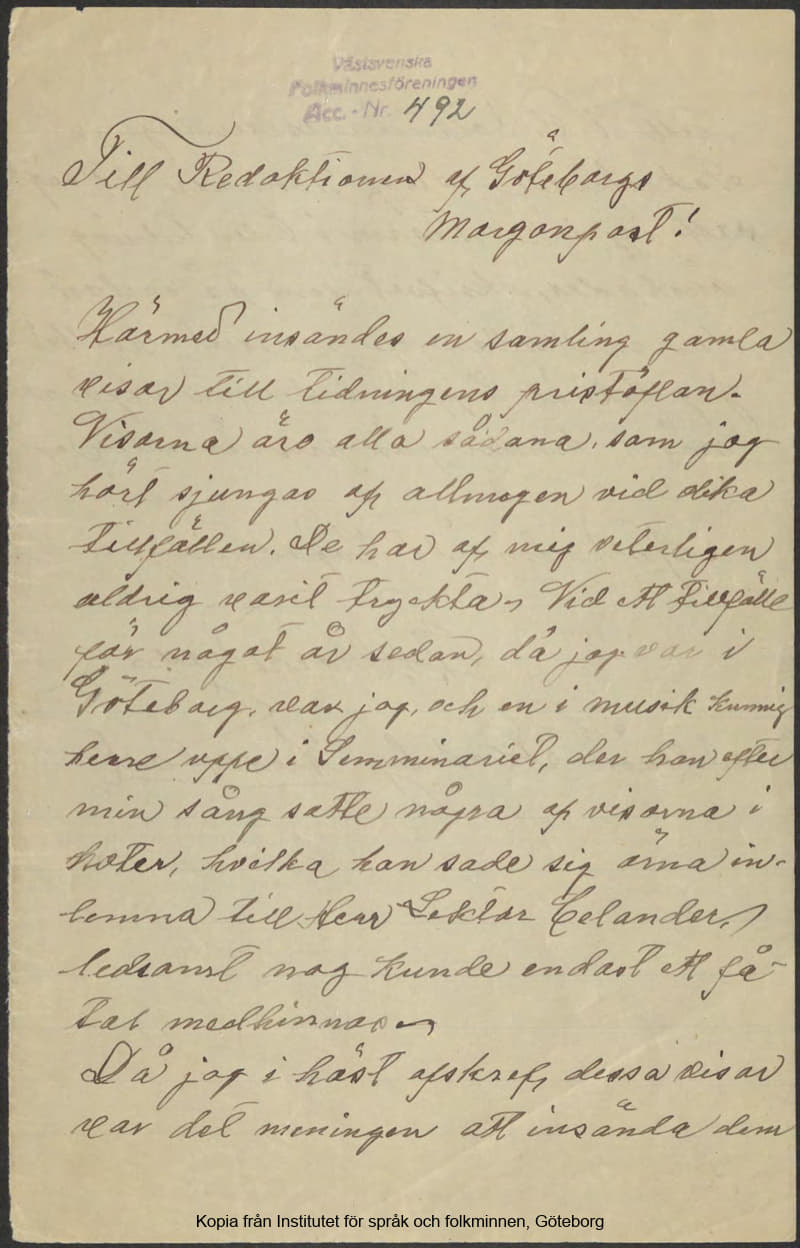 Västsvenska
Folkminnesföreningen
Acc.-Nr. 492
Till Redaktionen af Göteborgs
Morgonpost!
Härmed insändes en samling gamla
visor till tidningens pristäflan.
Visorna äro alla sådana, som jag
hört sjungas af allmogen vid olika
tillfällen. De har af mig veterligen
aldrig varit tryckta. Vid ett tillfälle
för något år sedan, då jag var i
Göteborg, var jag, och en i musik kunnig
herre uppe i Semminariet, der han efter
min sång satte några af visorna i
noter, hvilka han sade sig ärna in-
lemna till Herr Lektor Celander,
ledsamt nog kunde endast ett få-
tal medhinnas.
Då jag i höst afskref, dessa visor
var det meningen att insända dem
Kopia från Institutet för språk och folkminnen, Göteborg